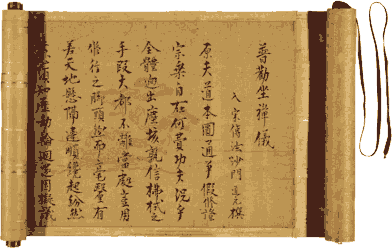 普勸坐禪儀
入宋傳法沙門道元撰
原夫道本圓通爭假修證
宗乘自在何費功夫況乎
全體迥出塵埃孰信拂拭之
手段大都不離當處豈用
修行之脚頭然而毫釐有
差天地懸隔違順纔起紛然
須知輪廻還因擬議